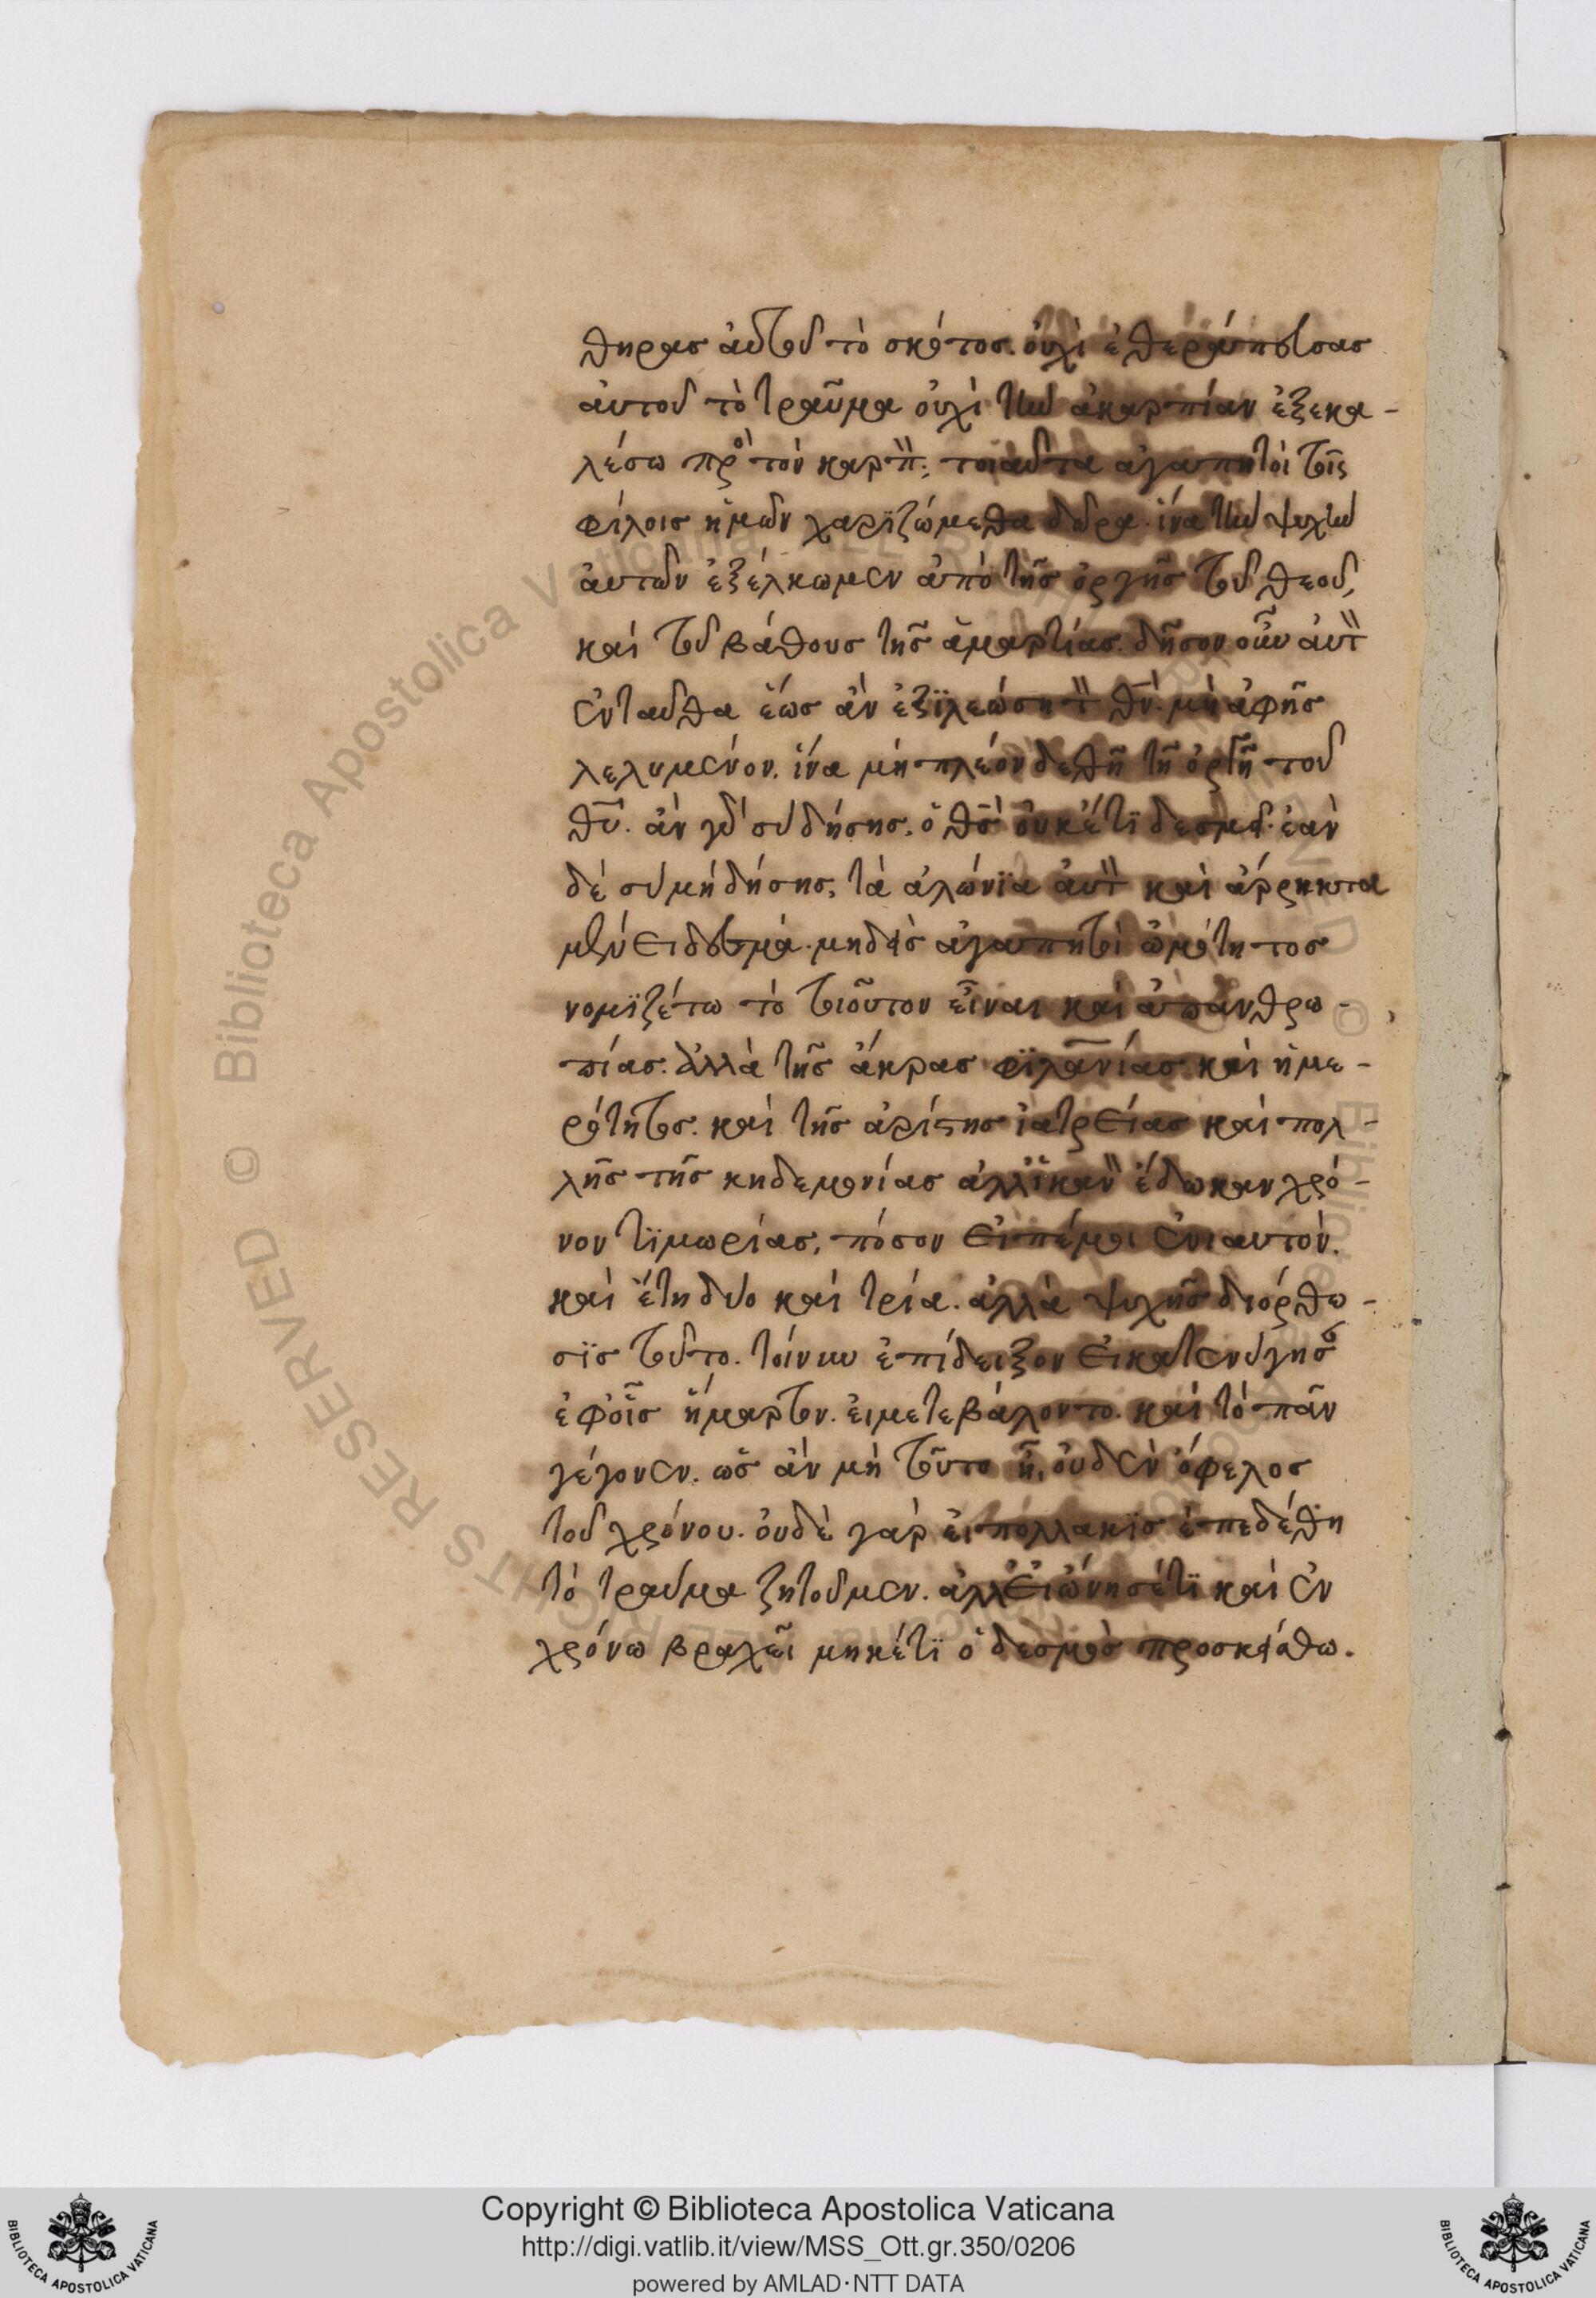 θηρας ἀυτοῦ τὸ σκότος. ὀυχὶ ἐθεράπευσας
ἀυτοῦ τὸ τραῦμα ὀυχὶ τὴν ἀκαρπίαν ἐξεκα-
λέσω πρὸ τὸν καρπ: τοιαῦτα ἀγαπητοὶ τοῖς
φίλοις ἡμῶν χαρϊζώμεθα δῶρα. ἵνα τὴν ψυχὴν
ἀυτῶν ἐξέλκωμεν ἀπὸ τῆς ὀργῆς τοῦ θεοῦ,
καὶ τοῦ βάθους τῆς ἁμαρτίας. δῆσον οὖν ἀυτ
ἐνταῦθα ἕως ἂν ἐξϊλεώση τ θν. μὴ ἀφῆς
λελυμένον. ἵνα μὴ πλέον δεθῆ τῆ ὀργῆ τοῦ
θυ. ἂν γὰρ σὺ δήσης, ὁ θς ὀυκέτϊ δεσμεῖ. ἐὰν
δὲ σὺ μὴ δήσης, τὰ ἀλώνϊα ἀυτ καὶ ἄρρηκτα
μένει δεσμά. μηδεὶς ἀγαπητοὶ ὠμότητος
νομϊζέτω τὸ τοιοῦτον εἶναι καὶ ἀπανθρω-
πίας. ἀλλὰ τῆς ἄκρας φϊλανίας καὶ ἡμε-
ρότητος. καὶ τῆς ἀρίστης ἰατρείας καὶ πολ-
λῆς τῆς κηδεμονίας ἔδωκαν χρό-
νον τϊμωρίας, πόσον ἐνιαυτόν.
καὶ ἔτη δύο καὶ τρία. ἀλλὰ ψυχῆς διόρθω-
σϊς τοῦτο. τοίνυν ἐπίδειξον εἰ κατενύγησ
ἐφοἷς ἥμαρτον. ἐιμετεβάλοντο. καὶ τὸ πᾶν
γέγονεν. ὡς ἂν μὴ τοῦτο ἦ, ὀυδὲν ὄφελος
τοῦ χρόνου. ὀυδὲ γὰρ ἐι πολλακϊς ἐπεδέθη
τὸ τραύμα ζητοῦμεν. ἀλλ ἐι ὤνησέ τϊ καὶ ἐν
χρόνω βραχεῖ μηκέτϊ ὁ δεσμὸς προσκείσθω.
Copyright © Biblioteca Apostolica Vaticana
http://digi.vatlib.it/view/MSS_Ott.gr.350/0206
powered by AMLAD·NTT DATA
BIBLIOTECA APOSTOLICA VATICANA
BIBLIOTECA APOSTOLICA VATICANA